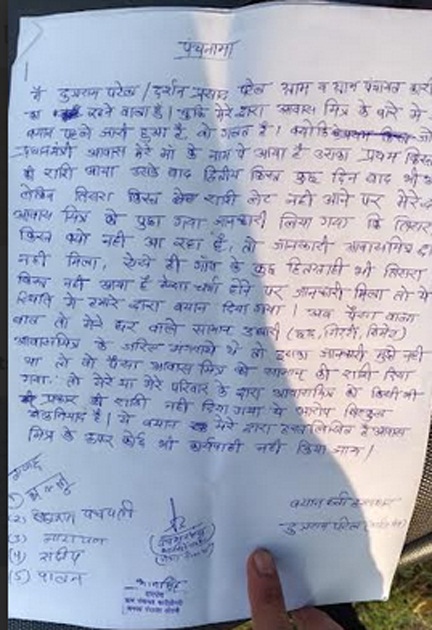 पंचनामा
मैं डुप्रराम पटेल / दर्शन प्रसाद पटेल ग्राम व ग्राम पंचायत
का रहने वाला है। चूकि मेरे द्वारा आवास मित्र के बारे मे
बयान पहले जारी हुआ है, वो गलत है। क्योंकि जो
प्रधानमंत्री आवास मेरे मां के नाम पे आया है उसका प्रथम किस्त
की राशि आया उसके बाद द्वितीय किस्त कुछ दिन बाद भी
लेकिन तिसरा किस्त राशी लेट नही आने पर मेरे
आवास मित्र को पुछा गया जानकारी लिया गया कि तिसरा
किस्त क्यों नही आ रहा है, तो जानकारी आवासमित्र
नही मिला, ऐसे ही गाँव के कुछ हितग्राही भी तिसरा
किस्त नही आया है चर्चा होने पर जानकारी मिला तो ये
स्थिति मे हमारे द्वारा बयान दिया गया। अब पैसा वाला
बात तो मेरे घर वाले सामान उधारी (छड़, गिट्टी, सिमेंट)
आवासमित्र के जरिए मंगवाये थे तो इसका जानकारी मुझे नही
था तो वो पैसा आवास मित्र को सामान की राशि दिया
गया, तो मेरे या मेरे परिवार के द्वारा आवासमित्र को किसी भी
प्रकार की राशी नही दिया गया ये आरोप बिल्कुल
बेबुनियाद है। ये बयान मेरे द्वारा हस्तलिखित है आवास
मित्र के ऊपर कोई भी कार्यवाही नही किया जाय।
(1)
(2) पंचपती
(3) नारायण
(4) संदीप
(5) पावन
पटेल
सरपंच
ग्राम पंचायत